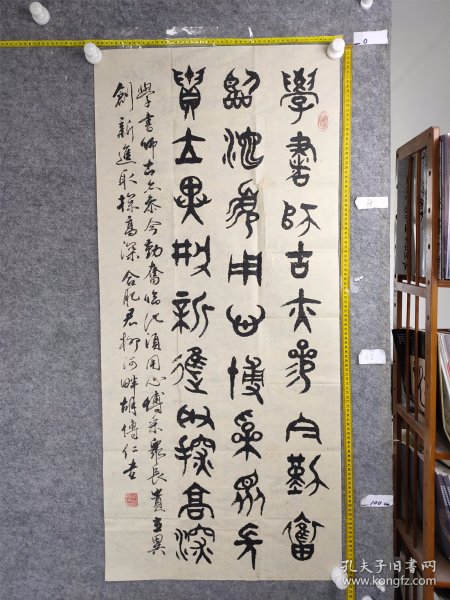 學書師古亦參今勤奮
臨池須用心博采眾長
貴立異創新進取探高深
學書師古亦參今勤奮臨池須用心博采衆長貴立異
創新進取探高深 合肥 河畔胡博仁書
0
100
孔夫子旧书网
www.kongfz.com